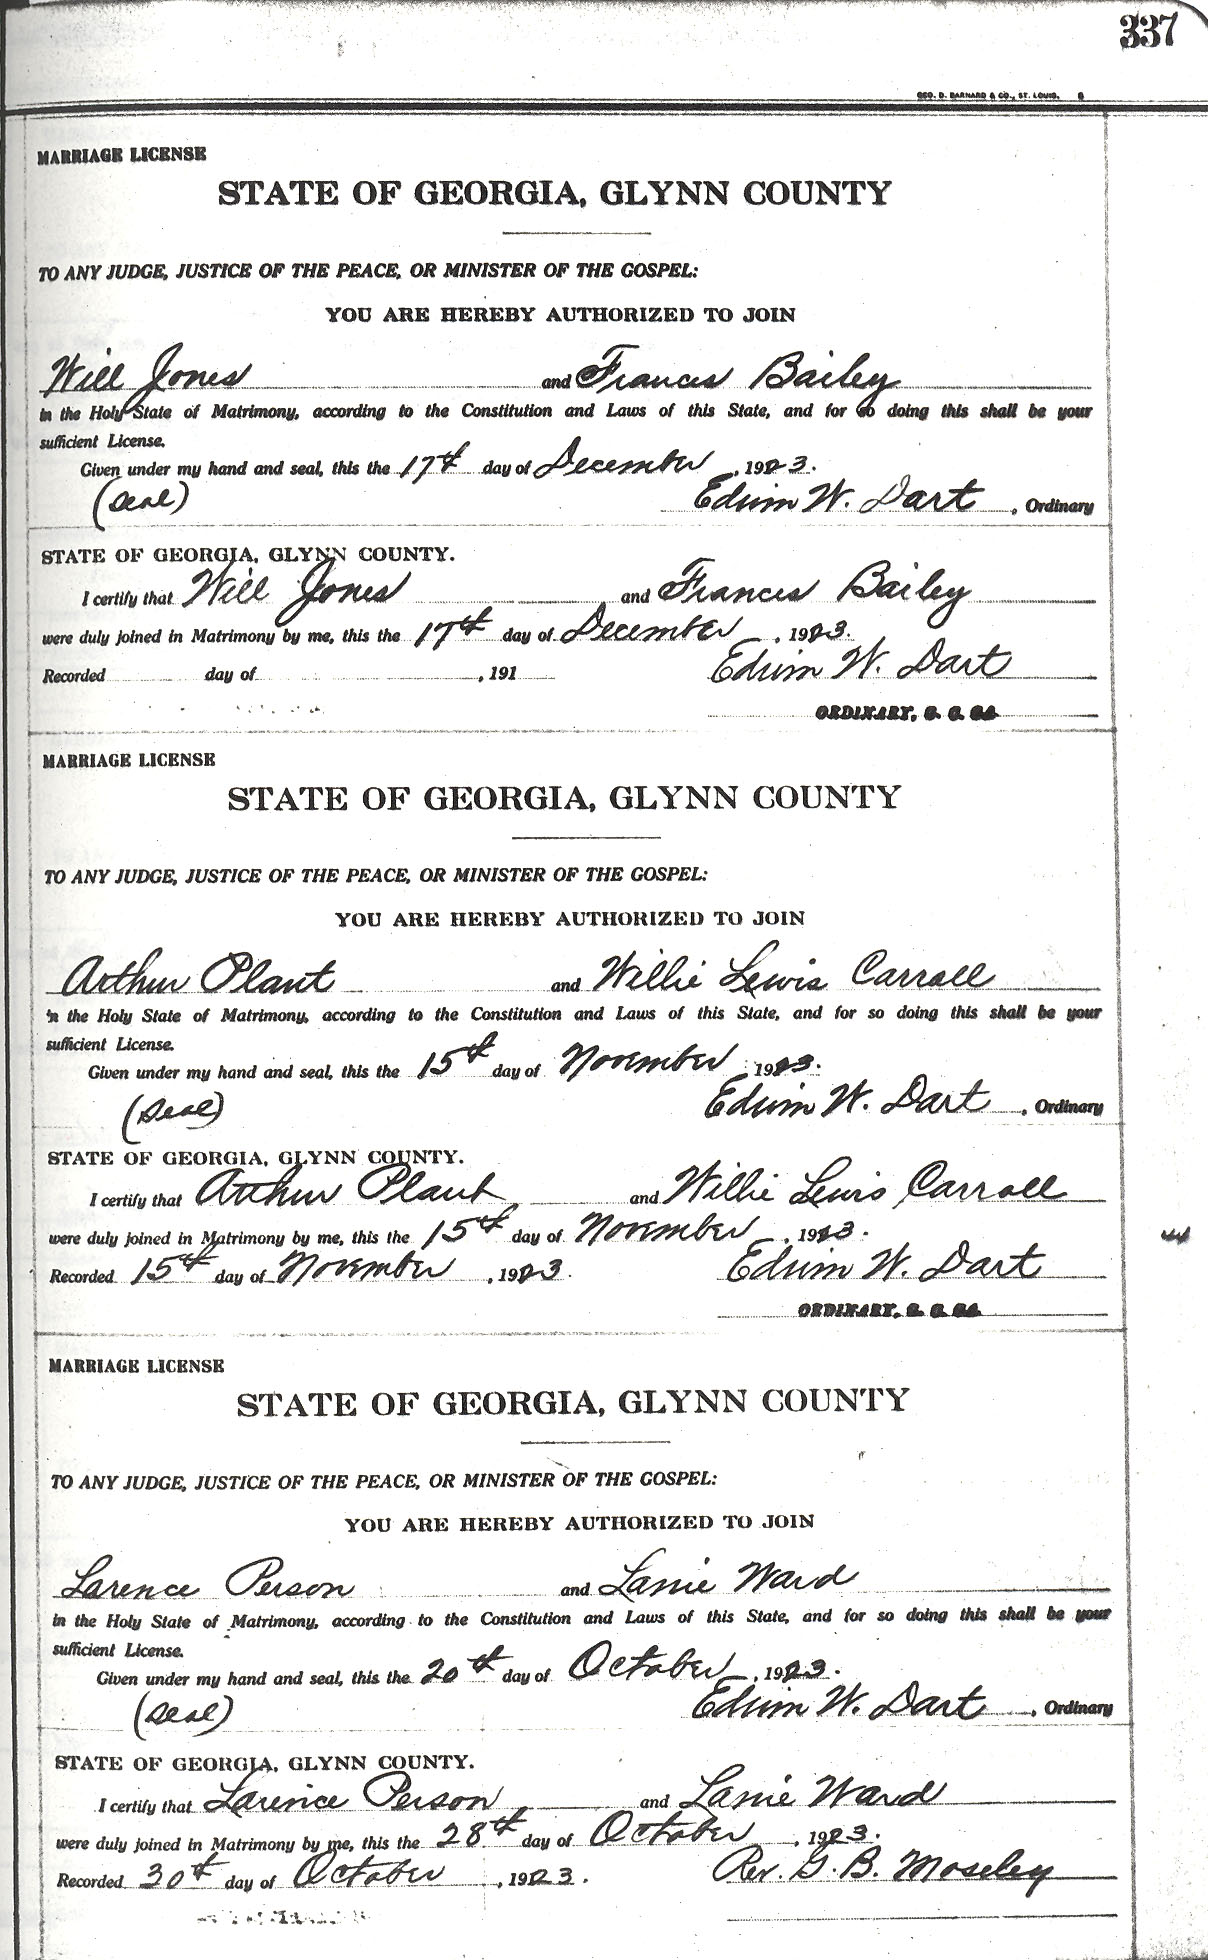 337
GEO. D. BARNARD & CO., ST. LOUIS. 6
MARRIAGE LICENSE
STATE OF GEORGIA, GLYNN COUNTY
TO ANY JUDGE, JUSTICE OF THE PEACE, OR MINISTER OF THE GOSPEL:
YOU ARE HEREBY AUTHORIZED TO JOIN
Will Jones and Frances Bailey
in the Holy State of Matrimony, according to the Constitution and Laws of this State, and for so doing this shall be your
sufficient License.
Given under my hand and seal, this the 17th day of December, 1923.
(Seal) Edwin W. Dart, Ordinary
STATE OF GEORGIA, GLYNN COUNTY.
I certify that Will Jones and Frances Bailey
were duly joined in Matrimony by me, this the 17th day of December, 1923.
Recorded day of , 191 Edwin W. Dart
ORDINARY, G. C. GA
MARRIAGE LICENSE
STATE OF GEORGIA, GLYNN COUNTY
TO ANY JUDGE, JUSTICE OF THE PEACE, OR MINISTER OF THE GOSPEL:
YOU ARE HEREBY AUTHORIZED TO JOIN
Arthur Plant and Willie Lewis Carroll
in the Holy State of Matrimony, according to the Constitution and Laws of this State, and for so doing this shall be your
sufficient License.
Given under my hand and seal, this the 15th day of November, 1923.
(Seal) Edwin W. Dart, Ordinary
STATE OF GEORGIA, GLYNN COUNTY.
I certify that Arthur Plant and Willie Lewis Carroll
were duly joined in Matrimony by me, this the 15th day of November, 1923.
Recorded 15th day of November, 1923. Edwin W. Dart
ORDINARY, G. C. GA
MARRIAGE LICENSE
STATE OF GEORGIA, GLYNN COUNTY
TO ANY JUDGE, JUSTICE OF THE PEACE, OR MINISTER OF THE GOSPEL:
YOU ARE HEREBY AUTHORIZED TO JOIN
Larence Person and Lanie Ward
in the Holy State of Matrimony, according to the Constitution and Laws of this State, and for so doing this shall be your
sufficient License.
Given under my hand and seal, this the 20th day of October, 1923.
(Seal) Edwin W. Dart, Ordinary
STATE OF GEORGIA, GLYNN COUNTY.
I certify that Larence Person and Lanie Ward
were duly joined in Matrimony by me, this the 28th day of October, 1923.
Recorded 30th day of October, 1923. Rev. G. B. Moseley